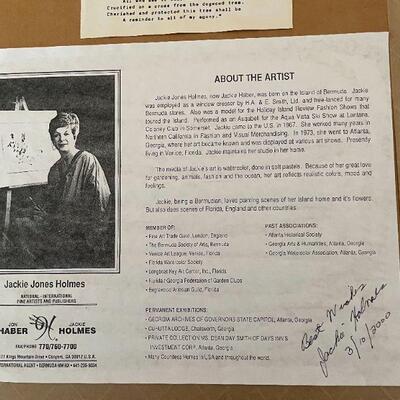 All and see it
Crucified on a cross from the dogwood tree.
Cherished and protected this tree shall be
A reminder to all of my agony."
ABOUT THE ARTIST
Jackie Jones Holmes, now Jackie Haber, was born on the Island of Bermuda. Jackie
was employed as a window dresser by H.A. & E. Smith, Ltd. and free-lanced for many
Bermuda stores. Also was a model for the Holiday Island Review Fashion Shows that
toured the Island. Performed as an Aquabel for the Aqua Vista Ski Show at Lantana,
Colony Club in Somerset. Jackie came to the U.S. in 1967. She worked many years in
Northern California in Fashion and Visual Merchandising. In 1973, she went to Atlanta,
Georgia, where her art became known and was displayed at various art shows. Presently
living in Venice, Florida. Jackie maintains her studio in her home.
The media of Jackie's art is watercolor, done in soft pastels. Because of her great love
for gardening, animals, fashion and the ocean, her art reflects realistic colors, mood and
feelings.
Jackie, being a Bermudian, loves painting scenes of her Island home and it's flowers.
But also does scenes of Florida, England and other countries.
MEMBER OF:
• Fine Art Trade Guild, London, England
• The Bermuda Society of Arts, Bermuda
• Venice Art League, Venice, Florida
• Florida Watercolor Society
• Longboat Key Art Center, Inc., Florida
• Florida / Georgia Federation of Garden Clubs
• Englewood Artisan Guild, Florida
PAST ASSOCIATIONS:
• Atlanta Historical Society
• Georgia Arts & Humanities, Atlanta, Georgia
• Georgia Watercolor Association, Atlanta, Georgia
PERMANENT EXHIBITIONS:
• GEORGIA ARCHIVES OF GOVERNORS STATE CAPITOL, Atlanta, Georgia
• CHHUTTA LODGE, Chatsworth, Georgia
• PRIVATE COLLECTION MRS. DEAN DAY SMITH OF DAYS INN'S
INVESTMENT CORP. Atlanta, Georgia
• Many Countless Homes in USA and throughout the world.
Best Wishes
Jackie Holmes
3/10/2000
Jackie Jones Holmes
NATIONAL - INTERNATIONAL
FINE ARTISTS AND PUBLISHERS
JON
HABER
JACKIE
HOLMES
FAX/PHONE 770/760-7700
Kings Mountain Drive • Conyers, GA 30012 U.S.A.
INTERNATIONAL AGENT • BERMUDA HMFAX • 441-295-9334